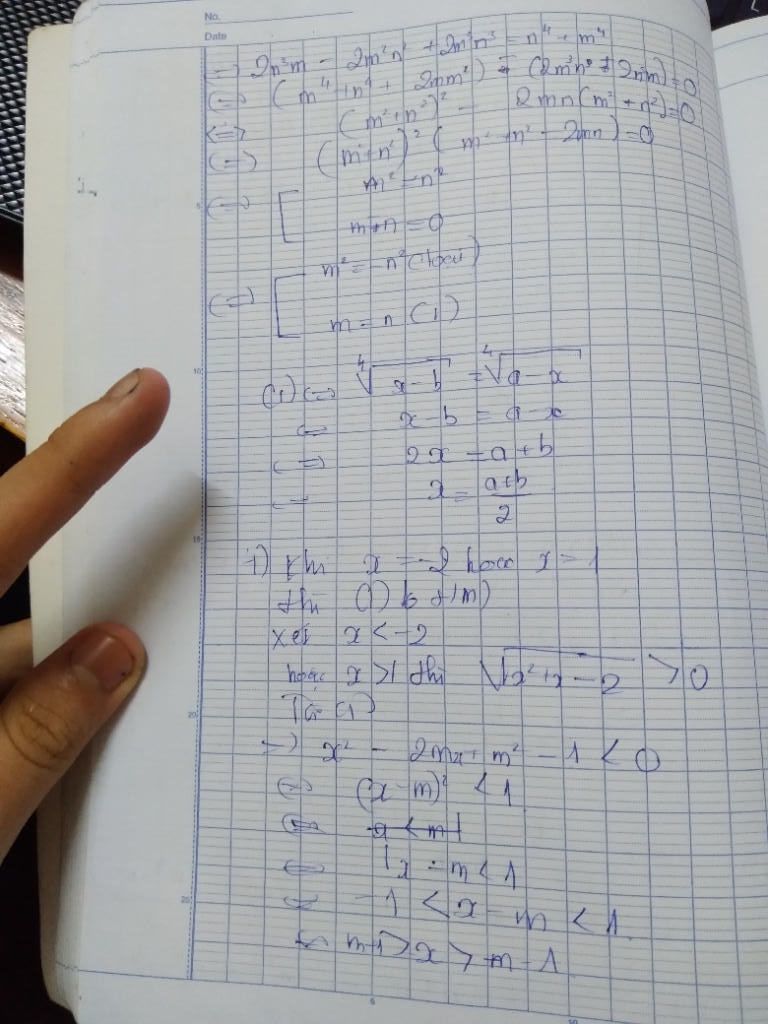 No.
Date
=) 2n³m - 2m²n² + 2m³n³ = n⁴ + m⁴
(=) (m⁴ + n⁴ + 2nm²) = (2m³n + 2n³m) = 0
<=> (m² + n²)² - 2mn(m² + n²) = 0
(=) (m² + n²)² (m² + n² - 2mn) = 0
(=) [ m² = n²
m + n = 0
(=) [ m² = -n² (loại)
m = n (1)
(1) (=) ⁴√(x - b) = ⁴√(a - x)
(=) x - b = a - x
(=) 2x = a + b
(=) x = (a+b)/2
7) Khi x = -2 hoặc x = 1
thì (1) k t/m)
xét x < -2
hoặc x > 1 thì √(x² + x - 2) > 0
Từ (1)
=) x² - 2mx + m² - 1 < 0
(=) (x - m)² < 1
(=) |x - m < 1
(=) -1 < x - m < 1
(=) m+1 > x > m - 1
5
10
15
20
25
5
10